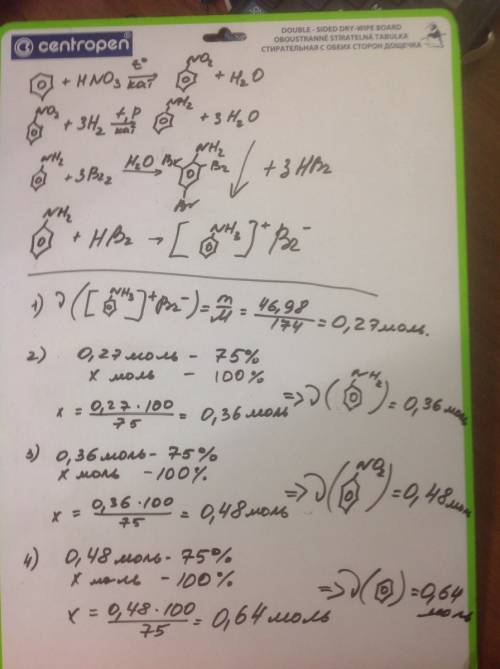 centropen
DOUBLE - SIDED DRY-WIPE BOARD
OBOUSTRANNĚ STÍRATELNÁ TABULKA
СТИРАТЕЛЬНАЯ С ОБЕИХ СТОРОН ДОЩЕЧКА
+ HNO3 t° кат → NO2 + H2O
NO2 + 3H2 t, P кат → NH2 + 3H2O
NH2 + 3Br2 H2O → NH2 Br Br Br + 3HBr
NH2 + HBr → [ NH3 ]+ Br-
1) ν([ NH3 ]+ Br-) = m/M = 46,98/174 = 0,27 моль.
2) 0,27 моль - 75%
x моль - 100%
x = 0,27 · 100/75 = 0,36 моль => ν( NH2 ) = 0,36 моль
3) 0,36 моль - 75%
x моль - 100%.
x = 0,36 · 100/75 = 0,48 моль => ν( NO2 ) = 0,48 моль
4) 0,48 моль - 75%
x моль - 100%
x = 0,48 · 100/75 = 0,64 моль => ν( ) = 0,64 моль